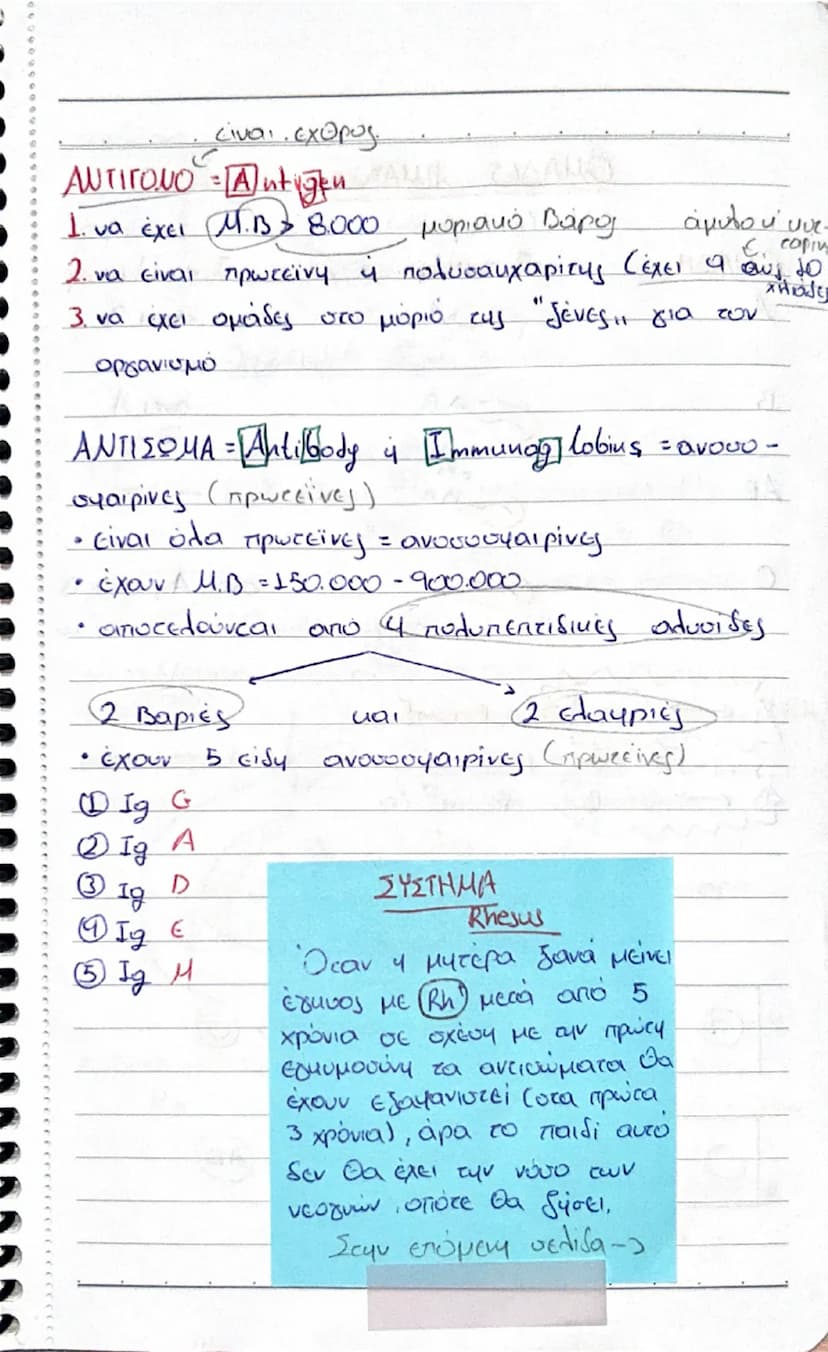 είναι εχθρός
ΑΝΤΙΓΟΝΟ = Antigen
1. να έχει Μ.Β > 8.000 μοριακό βάρος
2. να είναι πρωτεΐνη ή πολυσακχαρίτης (έχει
άμυλο ή
10
χιλιάδες
3. να έχει ομάδες στο μόριό της "ξένες" για τον
οργανισμό
ΑΝΤΙΣΩΜΑ = Antibody ή Immunoglobins = ανοσο-
σφαιρίνες (πρωτεΐνες)
• είναι όλα πρωτεΐνες = ανοσοσφαιρίνες
• έχουν Μ.Β = 150.000 - 900.000
• αποτελούνται από 4 πολυπεπτιδικές αλυσίδες
2 βαριές και 2 ελαφριές
• έχουν 5 είδη ανοσοσφαιρίνες (πρωτεΐνες)
① Ig G
② Ig A
③ Ig D
④ Ig E
⑤ Ig M
ΣΥΣΤΗΜΑ
Rhesus
Όταν η μητέρα ξανά μείνει
έγκυος με Rh⁺ μετά από 5
χρόνια σε σχέση με την πρώτη
εγκυμοσύνη τα αντισώματα θα
έχουν εξαφανιστεί (στα πρώτα
3 χρόνια), άρα το παιδί αυτό
δεν θα έχει την νόσο των
νεογνών, οπότε θα ζήσει.
Στην επόμενη σελίδα →